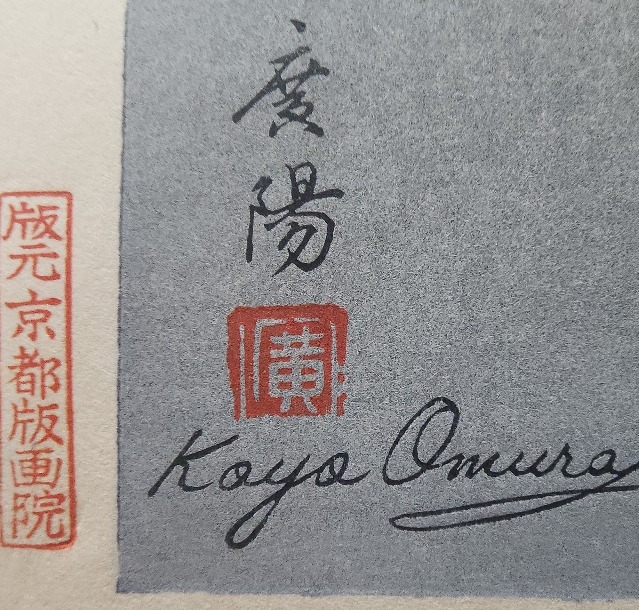 廣陽
廣
Koyo Omura
版元京都版画院